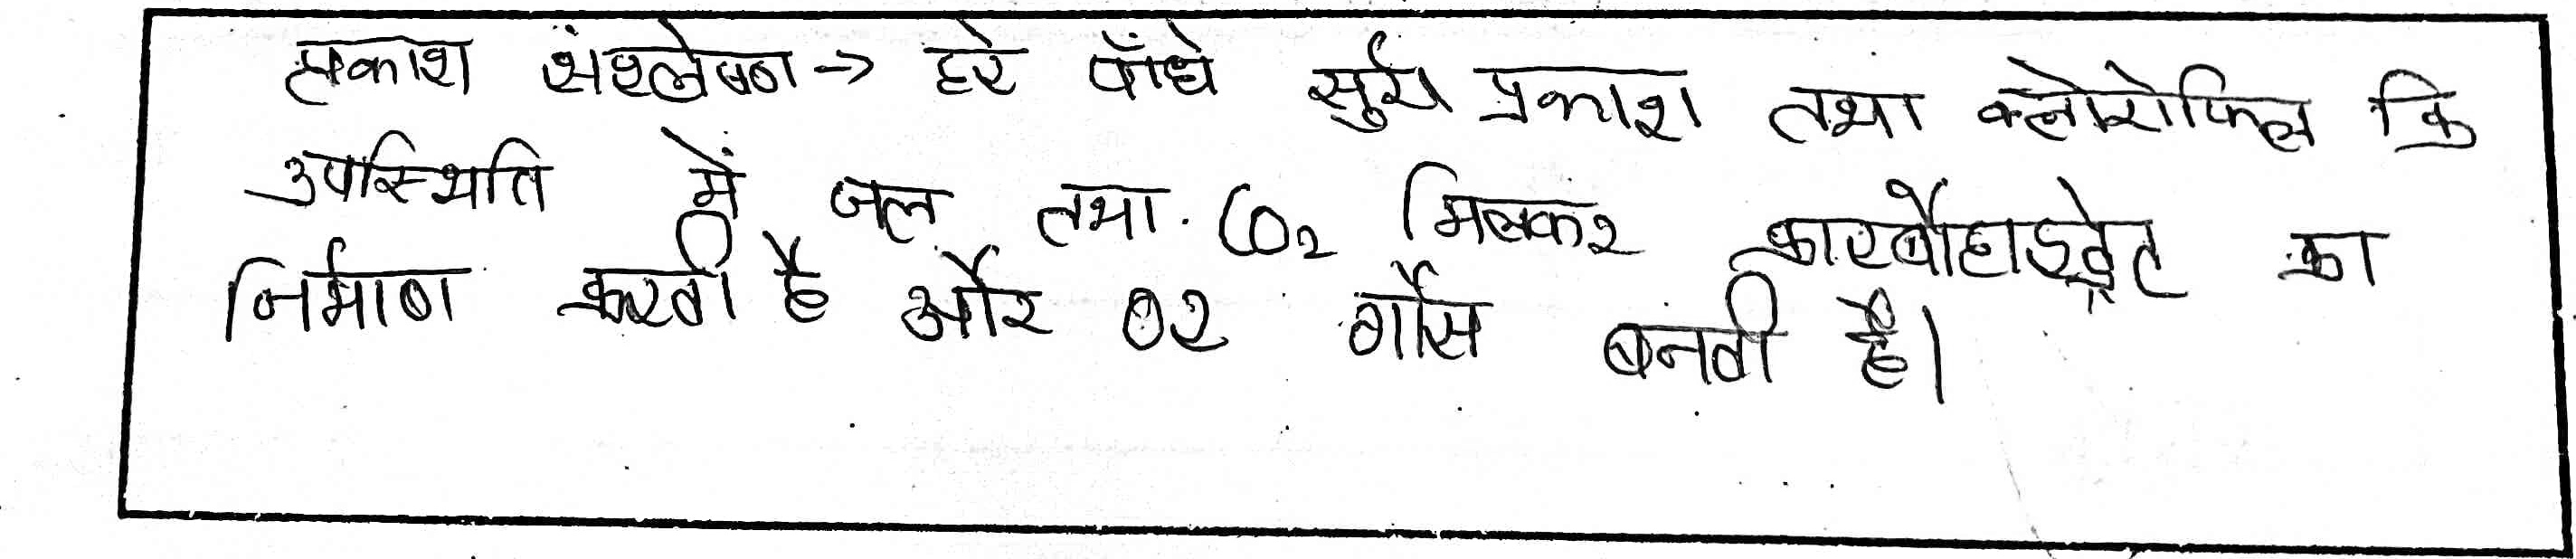 प्रकाश संश्लेषण → हरे पौंधे सुर्य प्रकाश तथा क्लोरोफिल कि
उपस्थिति में जल तथा CO₂ मिलकर कारबोहाइड्रेट का
निर्माण करती है और O2 गैस बनती है।